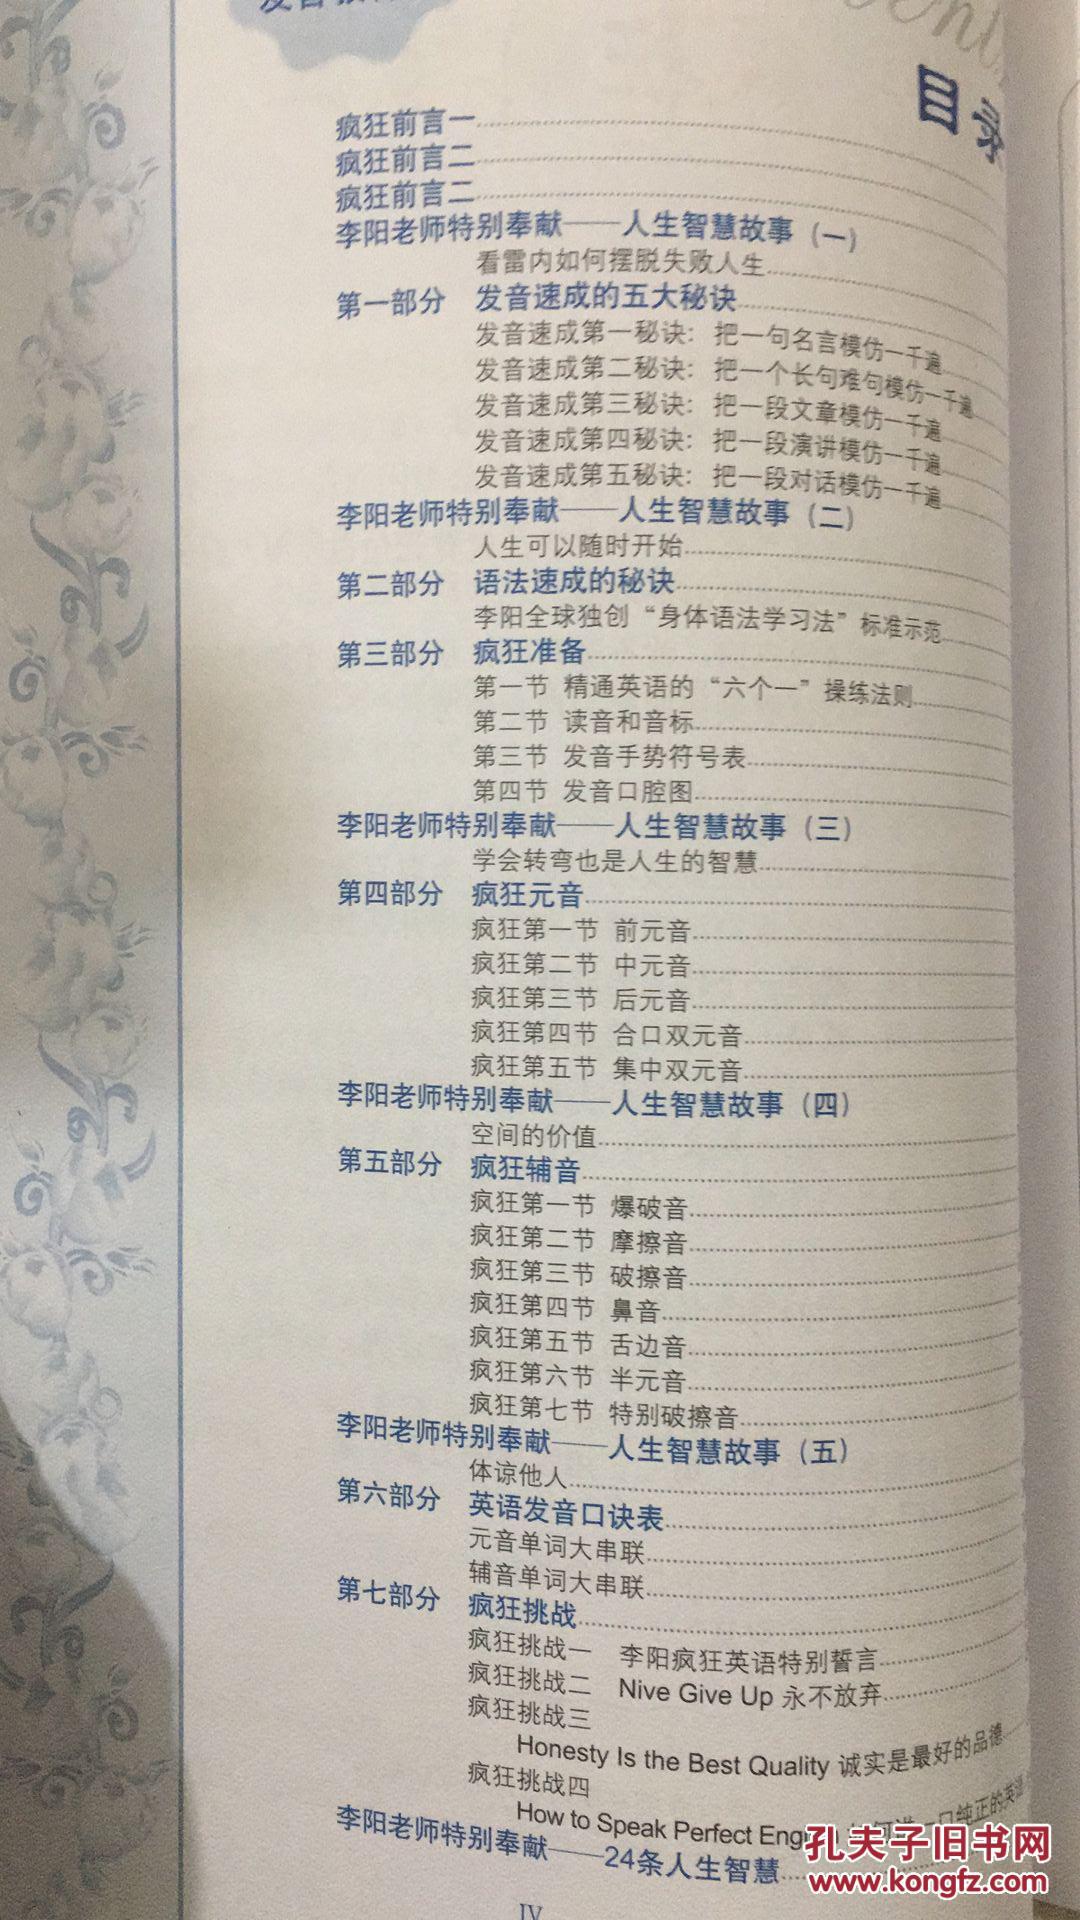 目录
疯狂前言一
疯狂前言二
疯狂前言二
李阳老师特别奉献——人生智慧故事（一）
看雷内如何摆脱失败人生
第一部分 发音速成的五大秘诀
发音速成第一秘诀：把一句名言模仿一千遍
发音速成第二秘诀：把一个长句难句模仿一千遍
发音速成第三秘诀：把一段文章模仿一千遍
发音速成第四秘诀：把一段演讲模仿一千遍
发音速成第五秘诀：把一段对话模仿一千遍
李阳老师特别奉献——人生智慧故事（二）
人生可以随时开始
第二部分 语法速成的秘诀
李阳全球独创“身体语法学习法”标准示范
第三部分 疯狂准备
第一节 精通英语的“六个一”操练法则
第二节 读音和音标
第三节 发音手势符号表
第四节 发音口腔图
李阳老师特别奉献——人生智慧故事（三）
学会转弯也是人生的智慧
第四部分 疯狂元音
疯狂第一节 前元音
疯狂第二节 中元音
疯狂第三节 后元音
疯狂第四节 合口双元音
疯狂第五节 集中双元音
李阳老师特别奉献——人生智慧故事（四）
空间的价值
第五部分 疯狂辅音
疯狂第一节 爆破音
疯狂第二节 摩擦音
疯狂第三节 破擦音
疯狂第四节 鼻音
疯狂第五节 舌边音
疯狂第六节 半元音
疯狂第七节 特别破擦音
李阳老师特别奉献——人生智慧故事（五）
体谅他人
第六部分 英语发音口诀表
元音单词大串联
辅音单词大串联
第七部分 疯狂挑战
疯狂挑战一 李阳疯狂英语特别誓言
疯狂挑战二 Nive Give Up 永不放弃
疯狂挑战三
Honesty Is the Best Quality 诚实是最好的品德
疯狂挑战四
How to Speak Perfect 口纯正的英语
李阳老师特别奉献——24条人生智慧
IV
孔夫子旧书网
www.kongfz.com